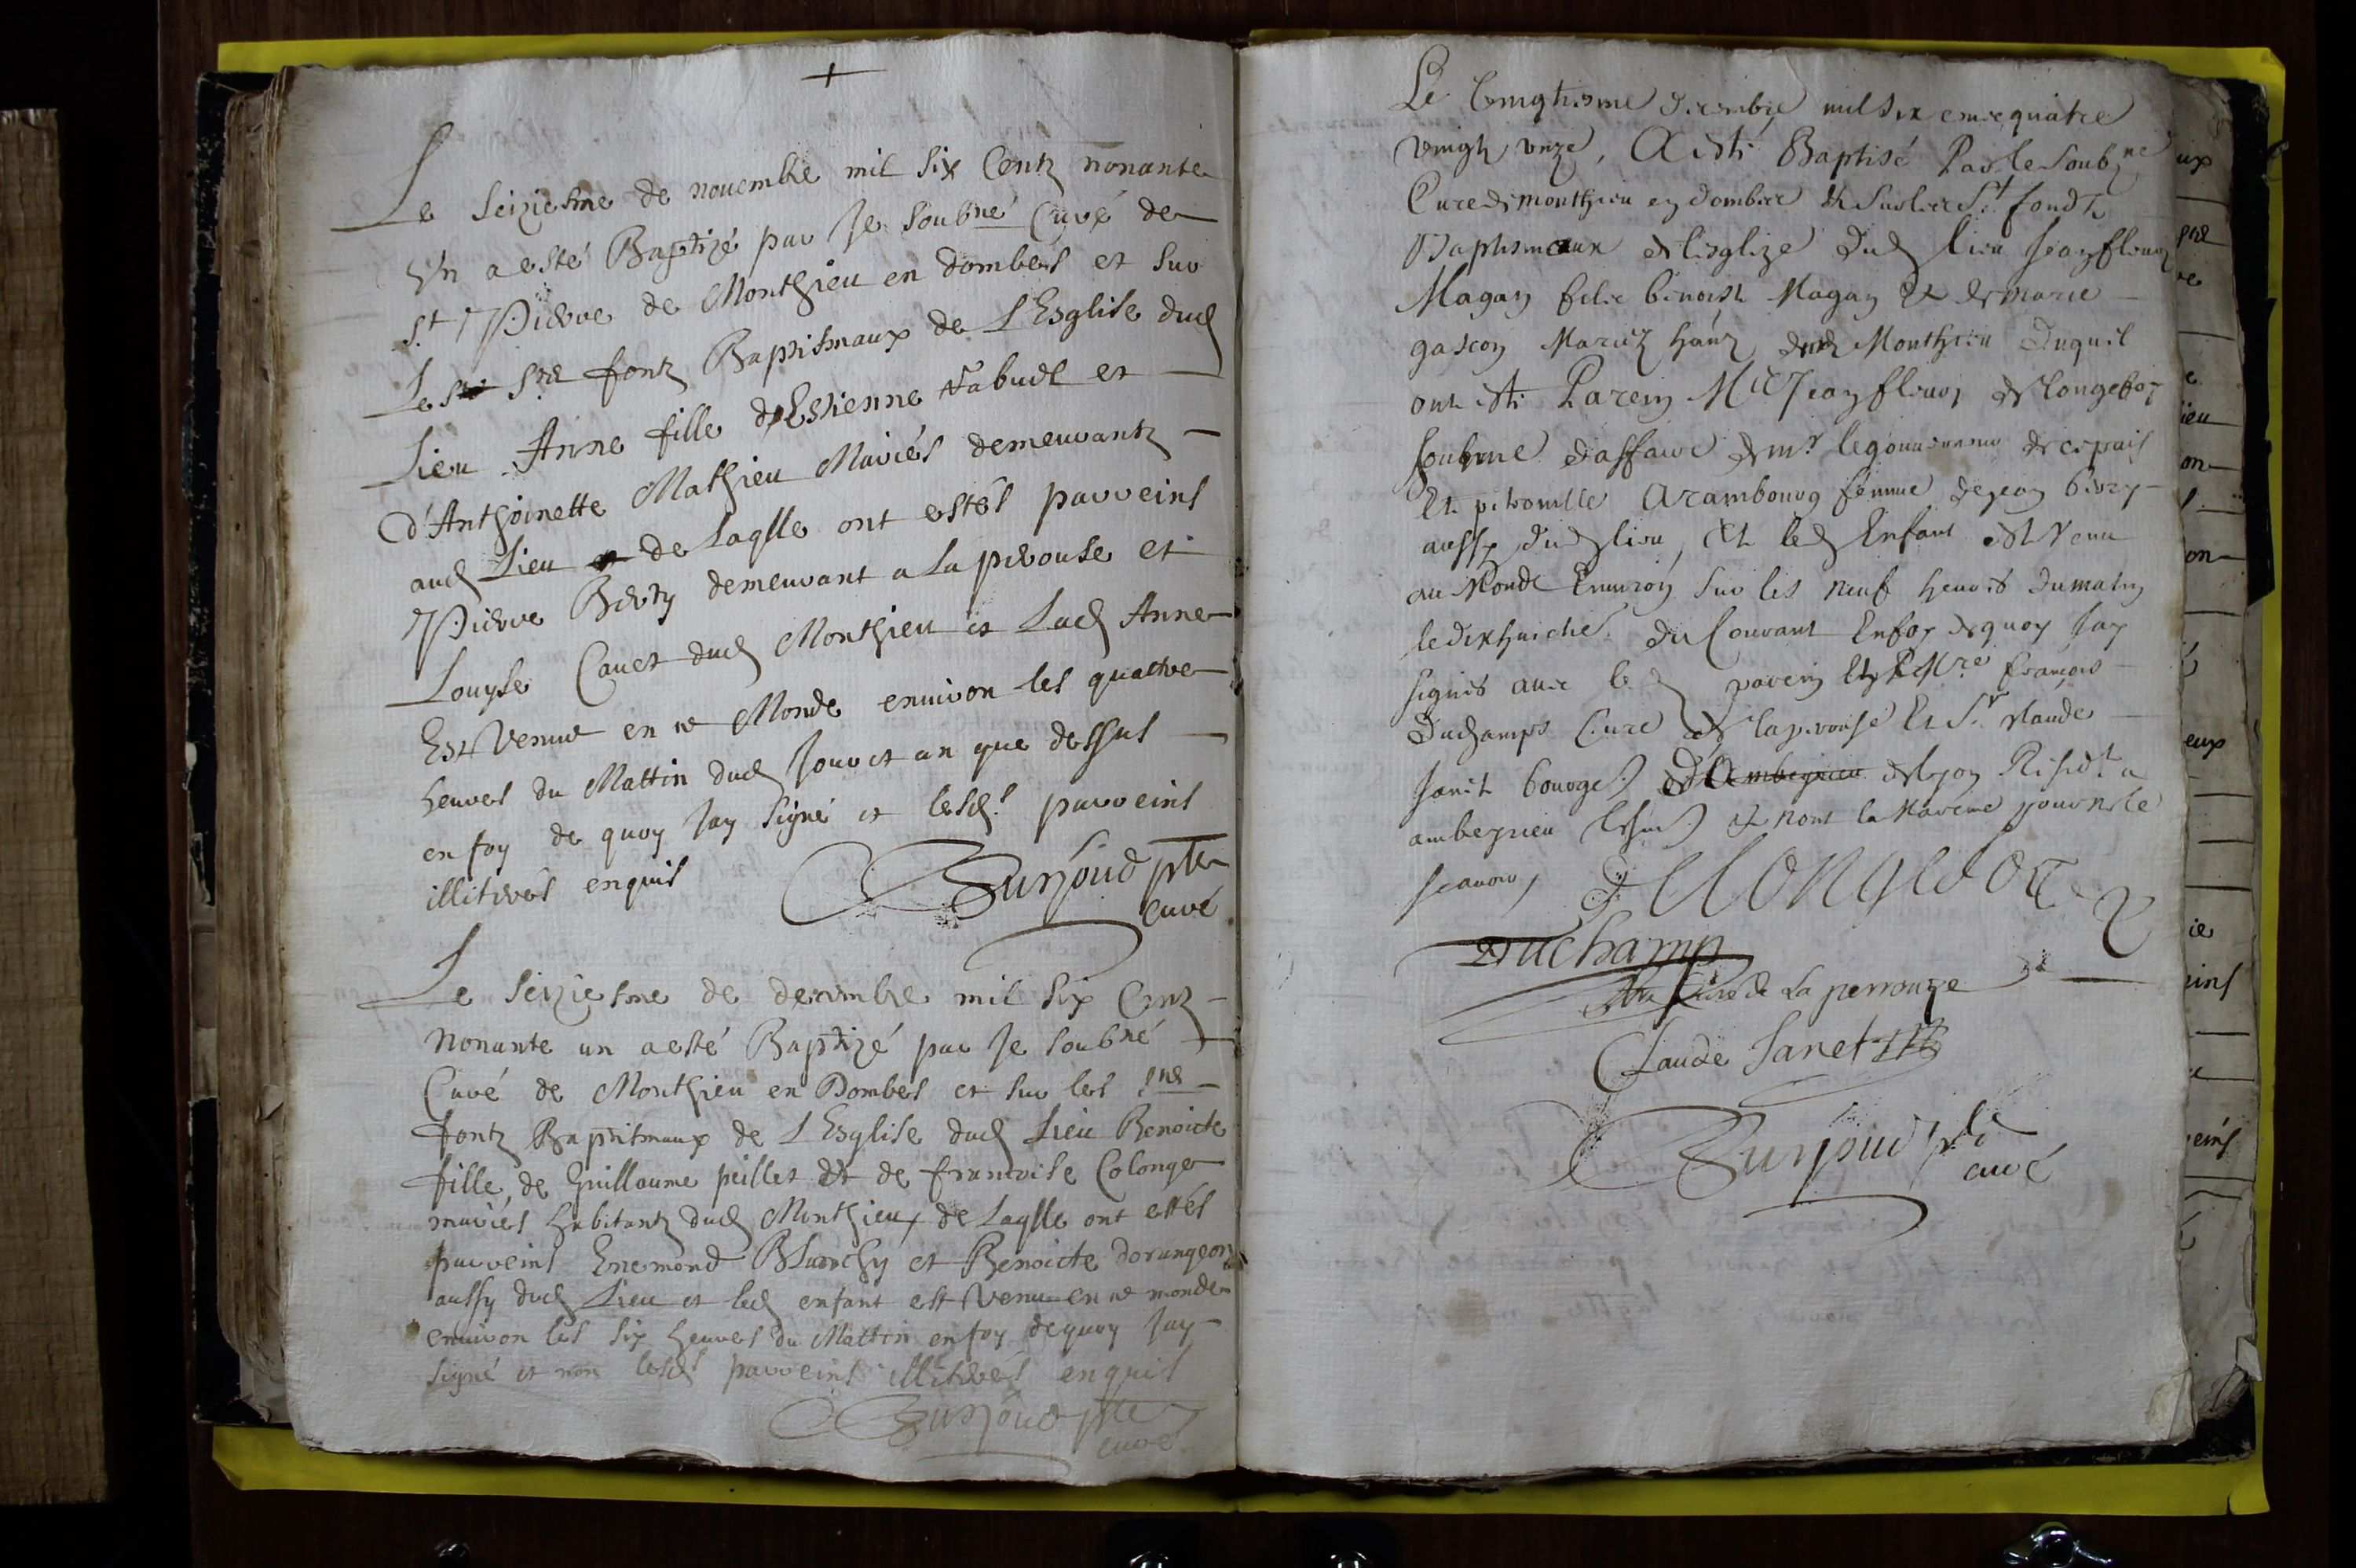 +
Le seiziesme de novembre mil six Centz nonante
Un a esté Baptizé par Je soubné Curé de
St Pierre de Monthieu en Dombes et sur
Les sts fontz Baptismaux de L'Esglise dud
Lieu Anne fille d'Estienne et
d'Anthoinette Mathieu Mariés demeurantz
aud Lieu de Laqlle ont estés parreins
Pierre demeurant a La pérouse et
Louyse dud Monthieu et Lad Anne
Est Venue en ce Monde environ les quattre
heures du Mattin dud Jour et an que dessus
en foy de quoy Jay signé et lesds parreins
illiterés enquis
curé
Le seiziesme de decembre mil six Centz
nonante un a esté Baptizé par Je soubné
Curé de Monthieu en Dombes et sur les
fontz Baptismaux de L'Esglise dud Lieu Benoicte
fille de Guillaume peillet et de francoise Colonge
mariés habitantz dud Monthieu de Laqlle ont estés
parreins Enemond Blanchy et Benoicte dorungeon
aussy dud Lieu et led enfant est Venu en ce monde
environ les six heures du Mattin en foy de quoy Jay
signé et non lesds parreins illiterés enquis
curé
Le vingtiesme decembre mil six cent quatre
vingtz unze, A esté Baptisé Par le soubzne
Cure de monthieu en dombes et sur les St fondz
Baptismaux de lesglize dud lieu Jean fleury
Magan filz benoist Magan et de marie
gascon Mariez dud Monthieu duquel
ont esté Parein Mre Jean fleury de longebor
homme d'affaire de mr le gouverneur de ce pais
Et petronille Arambourg femme de jean
aussy dud lieu, Et led Enfant est Venu
au Monde Environ sur les neuf heures du matin
le dixhuictie du Courant En foy de quoy Jay
signés avec led parein Et Mre françois
Duchamps Cure de laperouse Et Sr claude
Janet bourges d'Ambeyrieu de lyon Residt a
ambeyrieu et non la Mareine pour ne le
scavoir,
Delongebor
Duchamp
Curé de La perrouze
Claude Janet
curé